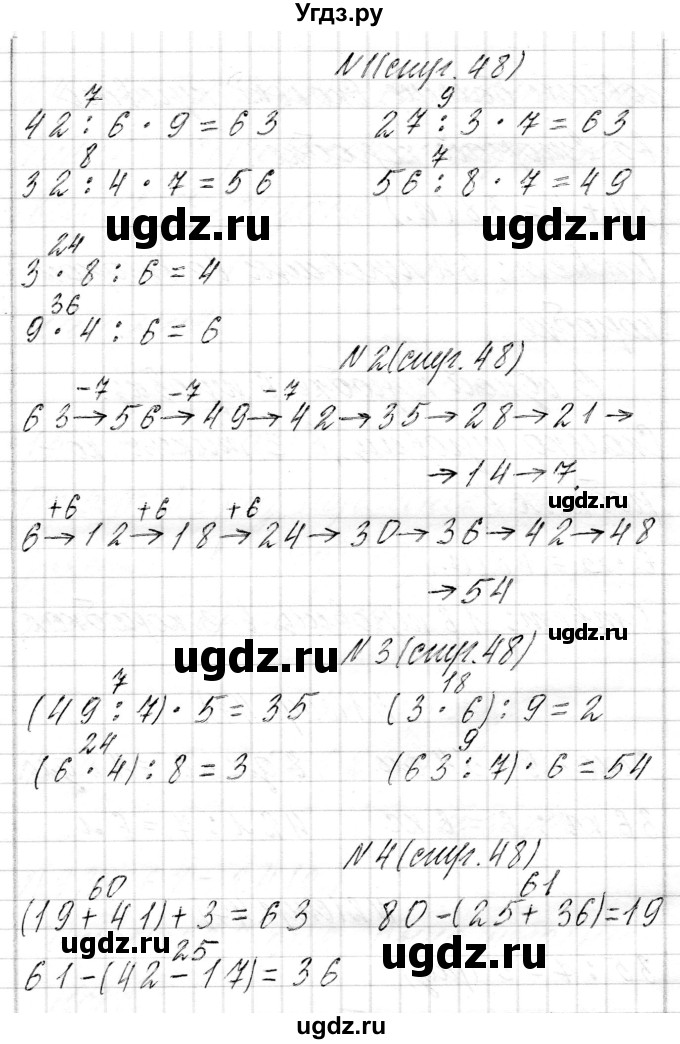 Угдз.ру
№1(стр. 48)
7 9
42 : 6 · 9 = 63 27 : 3 · 7 = 63
8 7
32 : 4 · 7 = 56 56 : 8 · 7 = 49
ugdz.ru ugdz.ru
24
3 · 8 : 6 = 4
36
9 · 4 : 6 = 6
№2(стр. 48)
-7 -7 -7
63→56→49→42→35→28→21→
→14→7.
ugdz.ru
+6 +6 +6
6→12→18→24→30→36→42→48
→54
ugdz.ru
ugdz.ru
№3(стр.48)
7 18
(49 : 7) · 5 = 35 (3 · 6) : 9 = 2
24 9
(6 · 4) : 8 = 3 (63 : 7) · 6 = 54
№4(стр.48)
60 61
(19 + 41) + 3 = 63 80 - (25 + 36) = 19
ugdz.ru ugdz.ru
25
61 - (42 - 17) = 36
ugdz.ru